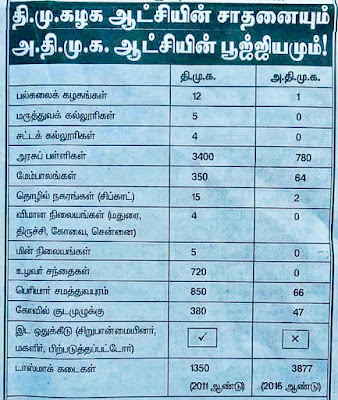 தி.மு.கழக ஆட்சியின் சாதனையும்
அ.தி.மு.க. ஆட்சியின் பூஜ்ஜியமும்!
தி.மு.க. அ.தி.மு.க.
பல்கலைக் கழகங்கள் 12 1
மருத்துவக் கல்லூரிகள் 5 0
சட்டக் கல்லூரிகள் 4 0
அரசுப் பள்ளிகள் 3400 780
மேம்பாலங்கள் 350 64
தொழில் நகரங்கள் (சிப்காட்) 15 2
விமான நிலையங்கள் (மதுரை, 4 0
திருச்சி, கோவை, சென்னை)
மின் நிலையங்கள் 5 0
உழவர் சந்தைகள் 720 0
பெரியார் சமத்துவபுரம் 850 66
கோவில் குடமுழுக்கு 380 47
இட ஒதுக்கீடு (சிறுபான்மையினர், ✓ ✕
மகளிர், பிற்படுத்தப்பட்டோர்)
டாஸ்மாக் கடைகள் 1350 3877
(2011 ஆண்டு) (2016 ஆண்டு)